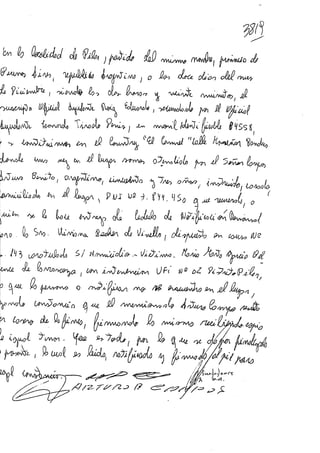 3819
en la localidad de Pilar, partido del mismo nombre, provincia de
Buenos Aires, república Argentina, a los doce dias del mes
de Diciembre, siendo las dos horas y veinte minutos, el
suscripto Oficial Ayudante Eduardo, secundado por el Oficial
Ayudante Leonardo Tirado, en movil identificable 84558,
constituimos en el Country "El Carmel" calle
donde una vez en el lugar somos atendido por el Señor Campos
Arturo Benito, argentino, cincuenta y tres años, instruido, casado,
domiciliado en el lugar, DNI Nº 7.844.450 a quien
se le hace entrega de cedula de Notificacion
para la Sra. Viviana Decker de Vivello, dispuesto en causa Nº
143 caratulada S/ Homicidio - Victima. Maria Marta Garcia Bel
sunce de Carrascosa, con intervencion UFI Nº 02 Distrito Pilar,
que la persona a notificar no se encuentra en el lugar,
constancia que el mencionado Arturo Campos
firmando la misma recibiendo copia
igual tenor. Que es todo, por lo que se da por finalizada
presente, la cual es leida, ratificada y firmada al pie para
legal constancia.
ARTURO B CAMPOS